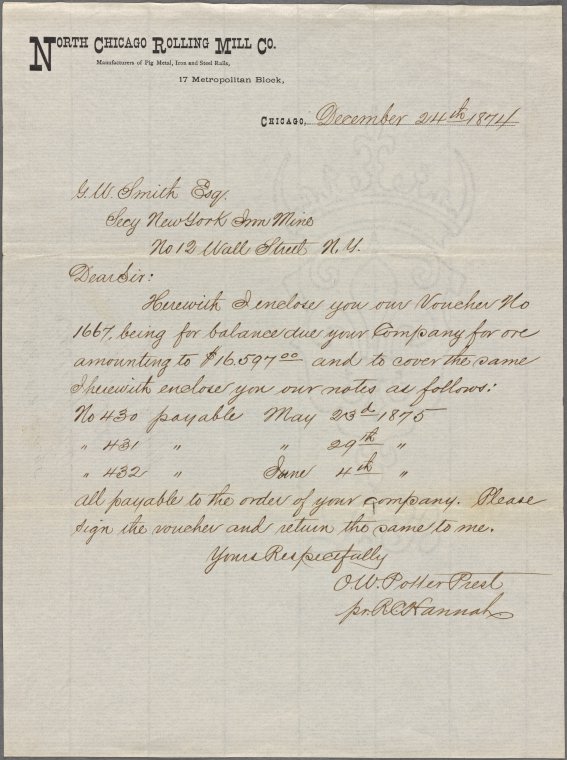 NORTH CHICAGO ROLLING MILL CO.
Manufacturers of Pig Metal, Iron and Steel Rails,
17 Metropolitan Block,
CHICAGO, December 24th 1874
G.W. Smith Esq.
Secy New York Iron Mine
No 12 Wall Street N.Y.
Dear Sir:
Herewith I enclose you our Voucher No
1667, being for balance due your Company for ore
amounting to $16.597 00 and to cover the same
I herewith enclose you our notes as follows:
No 430 payable May 23d 1875
" 431 " " 29th "
" 432 " June 4th "
all payable to the order of your company. Please
sign the voucher and return the same to me.
Yours Respectfully
O.W. Potter Prest
pr. R.C. Hannah